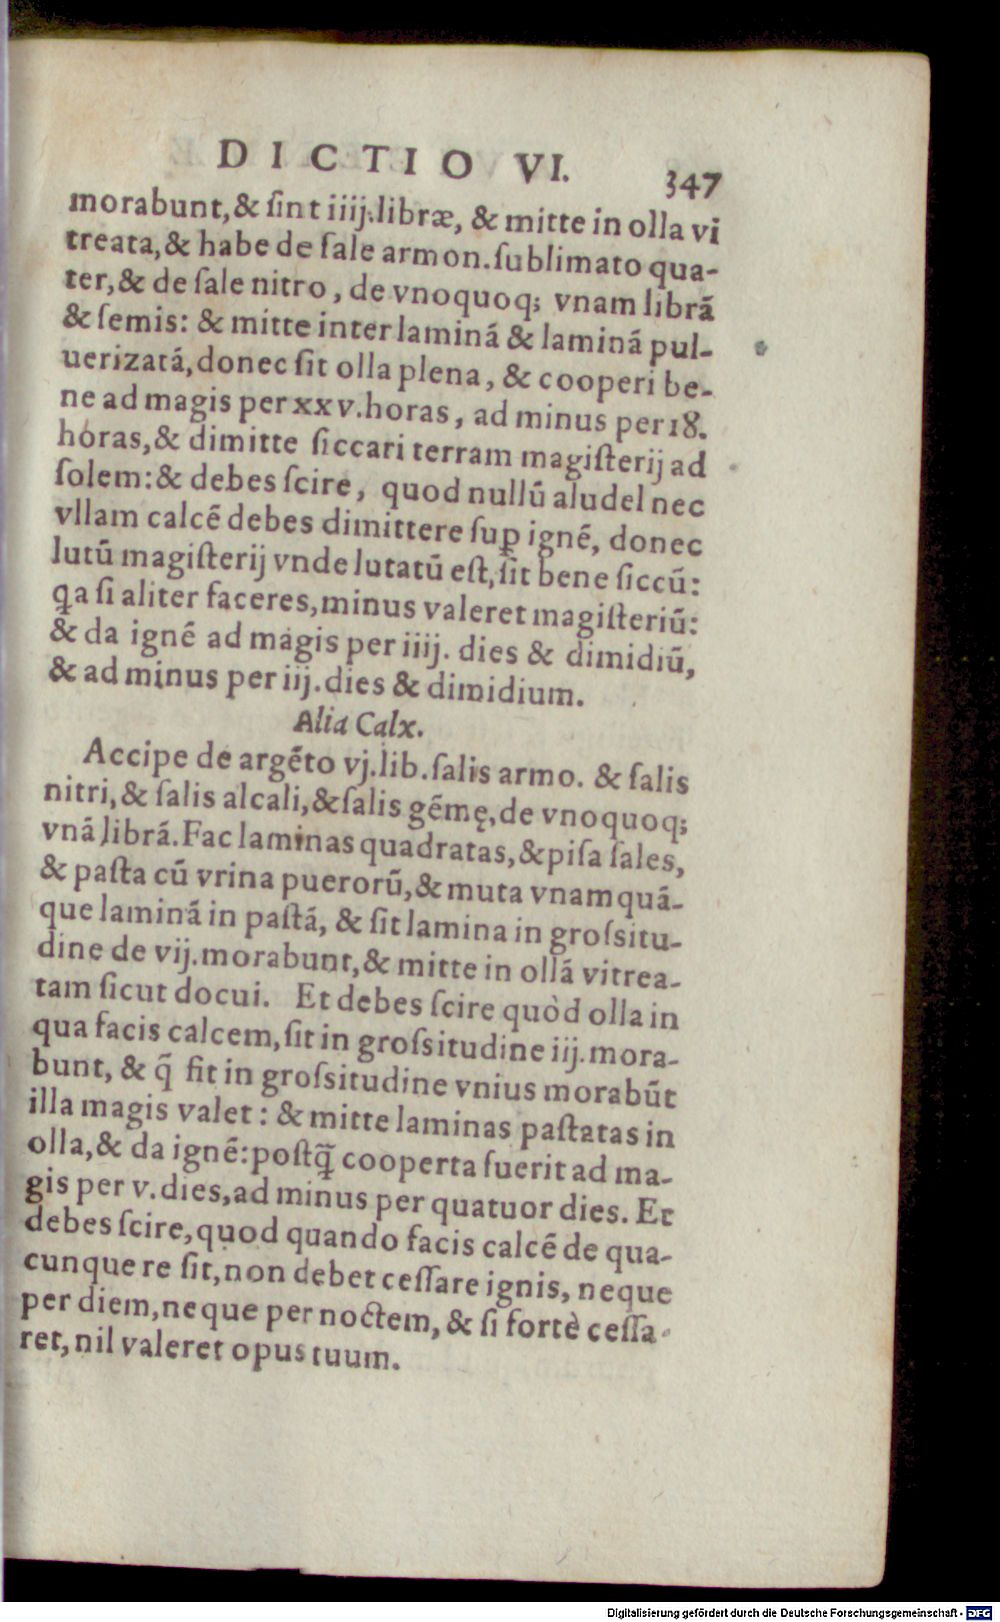 DICTIO VI. 347
morabunt, & ſint iiij. libræ, & mitte in olla vi
treata, & habe de ſale armon. ſublimato qua-
ter, & de ſale nitro, de vnoquoq; vnam librā
& ſemis: & mitte inter laminā & laminā pul-
uerizatā, donec ſit olla plena, & cooperi be-
ne ad magis per xxv. horas, ad minus per 18.
horas, & dimitte ſiccari terram magiſterij ad
ſolem: & debes ſcire, quod nullū aludel nec
vllam calcē debes dimittere ſuꝑ ignē, donec
lutū magiſterij vnde lutatū eſt, ſit bene ſiccū:
qa ſi aliter faceres, minus valeret magiſteriū:
& da ignē ad magis per iiij. dies & dimidiū,
& ad minus per iij. dies & dimidium.
Alia Calx.
Accipe de argēto vj. lib. ſalis armo. & ſalis
nitri, & ſalis alcali, & ſalis gēmę, de vnoquoq;
vnā librā. Fac laminas quadratas, & piſa ſales,
& paſta cū vrina puerorū, & muta vnamquā-
que laminā in paſtā, & ſit lamina in groſsitu-
dine de vij. morabunt, & mitte in ollā vitrea-
tam ſicut docui. Et debes ſcire quòd olla in
qua facis calcem, ſit in groſsitudine iij. mora-
bunt, & q̃ fit in groſsitudine vnius morabūt
illa magis valet: & mitte laminas paſtatas in
olla, & da ignē: poſtq̃ cooperta fuerit ad ma-
gis per v. dies, ad minus per quatuor dies. Et
debes ſcire, quod quando facis calcē de qua-
cunque re ſit, non debet ceſſare ignis, neque
per diem, neque per noctem, & ſi fortè ceſſa-
ret, nil valeret opus tuum.
Digitalisierung gefördert durch die Deutsche Forschungsgemeinschaft - DFG